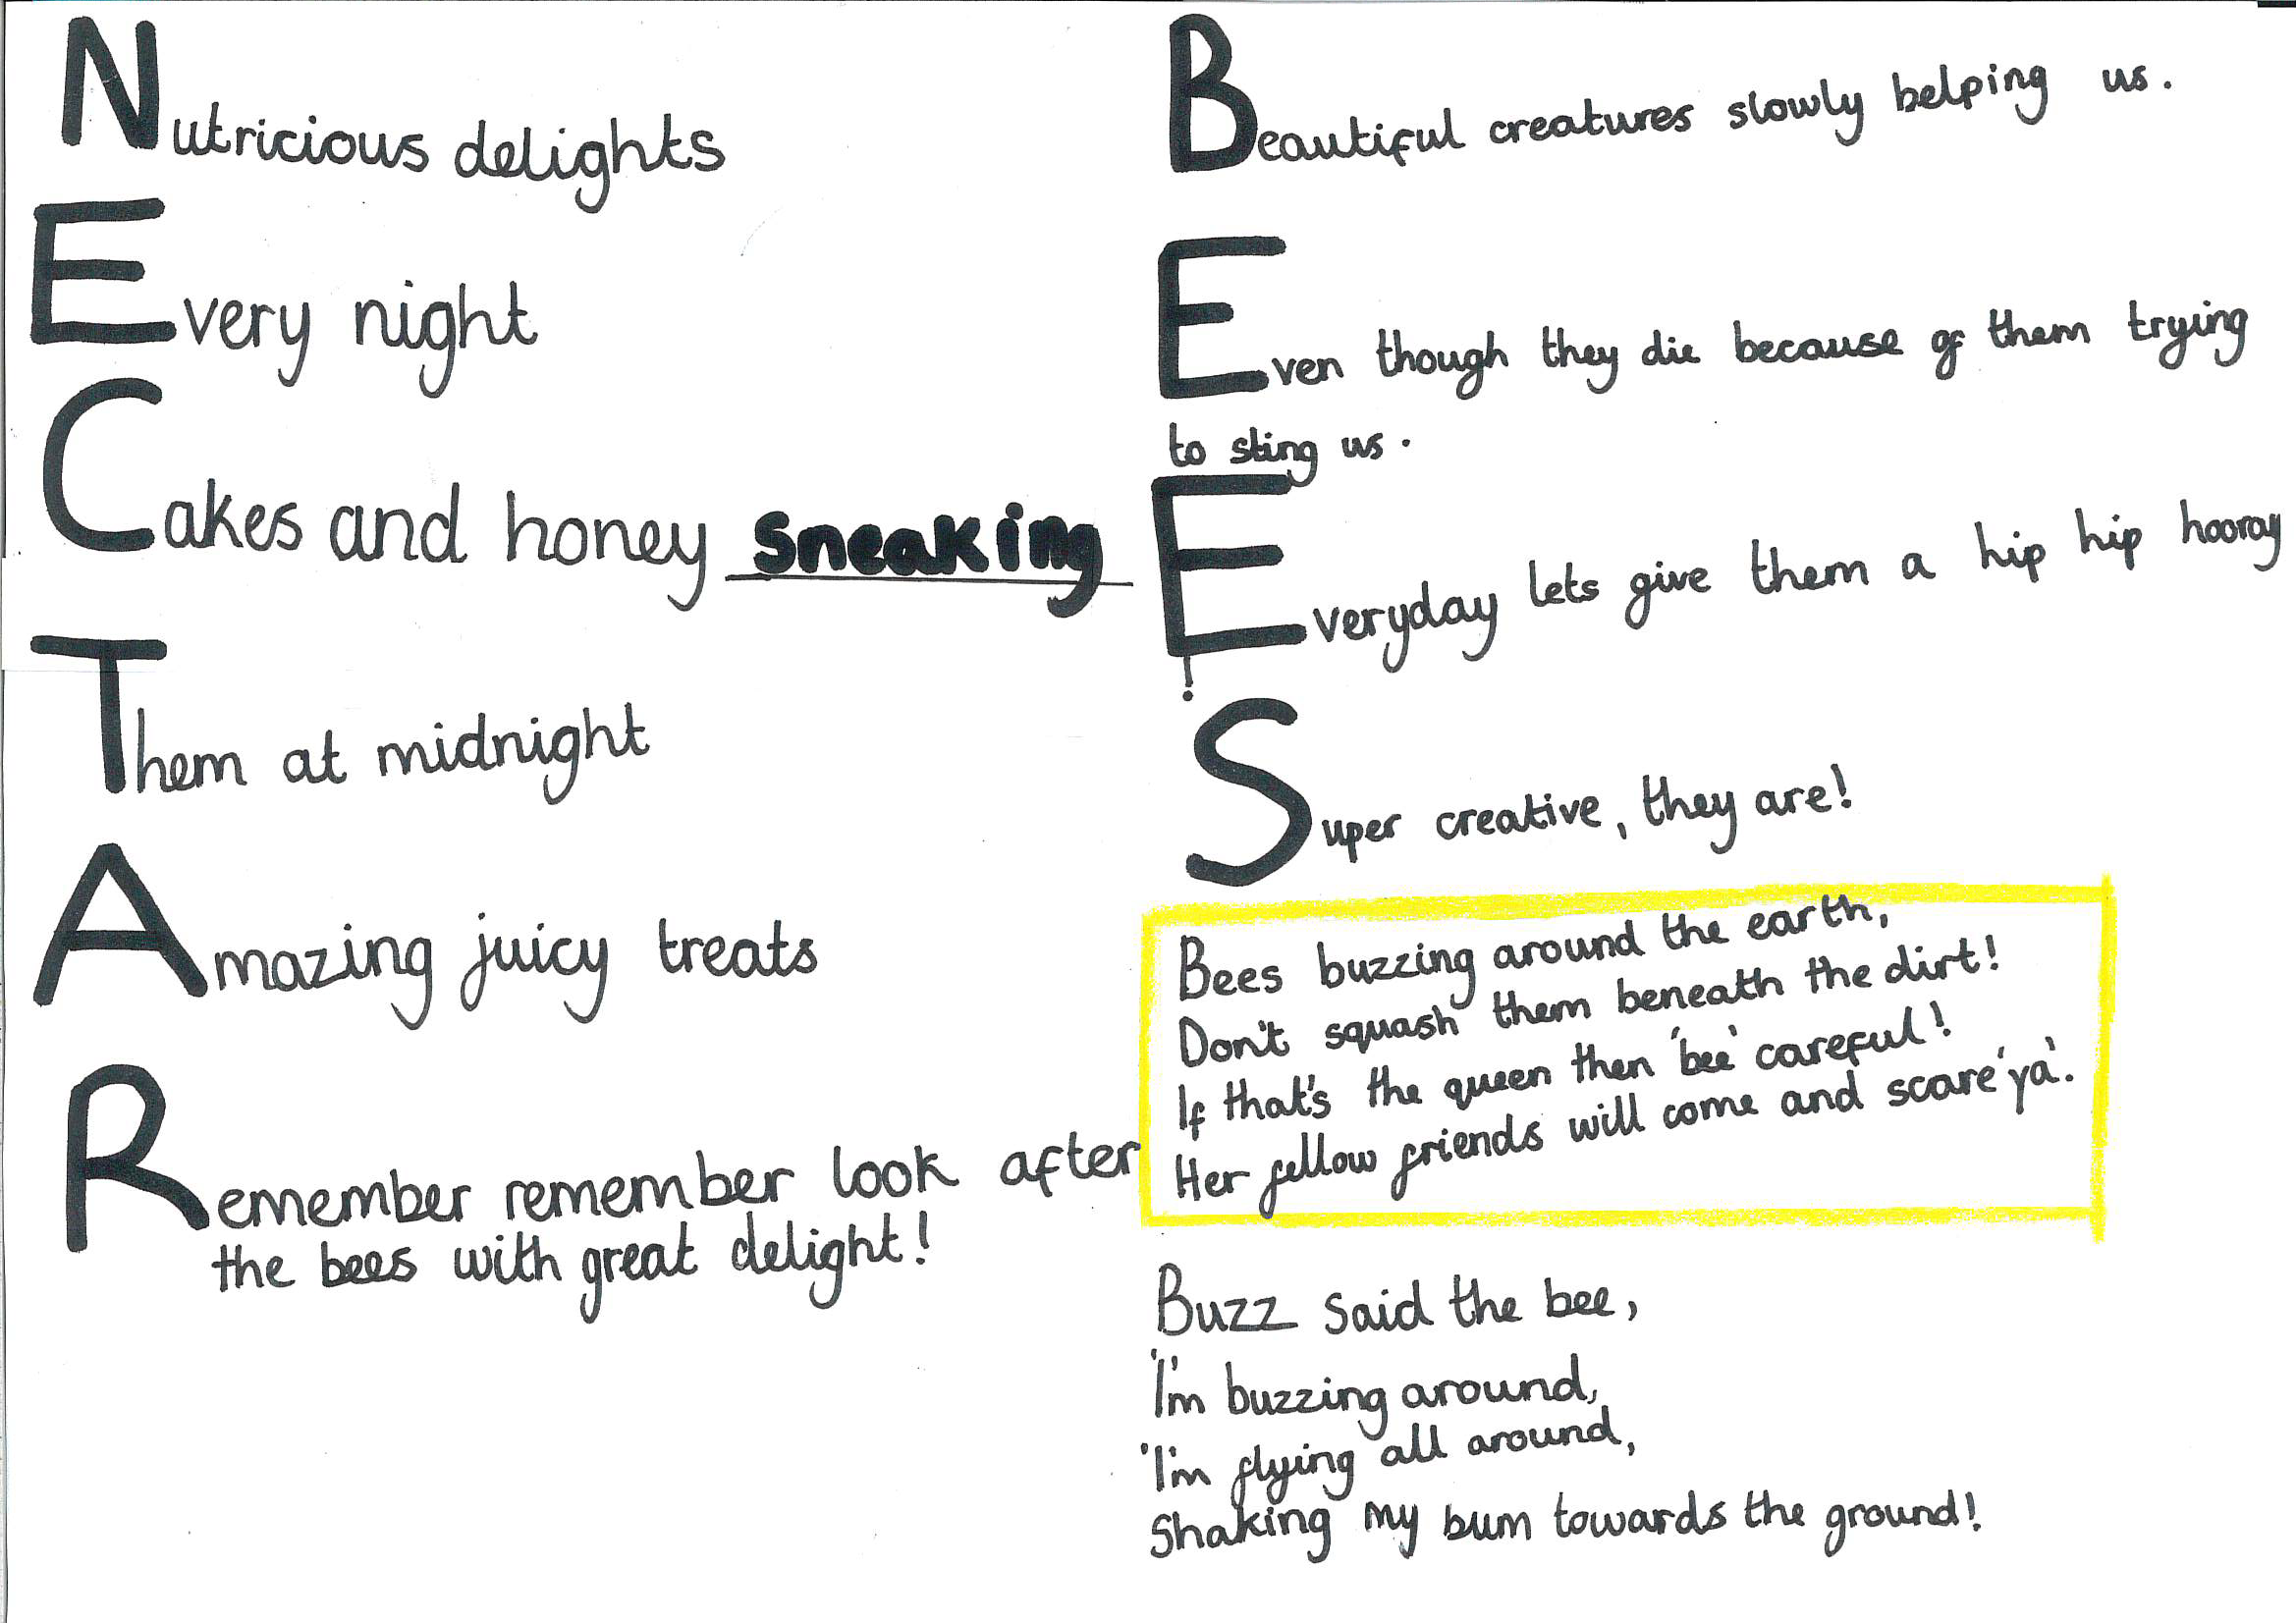 Nutricious delights
Every night
Cakes and honey sneaking
Them at midnight
Amazing juicy treats
Remember remember look after
the bees with great delight!
Beautiful creatures slowly helping us.
Even though they die because of them trying
to sting us.
Everyday lets give them a hip hip hooray
!
Super creative, they are!
Bees buzzing around the earth,
Don't squash them beneath the dirt!
If that's the queen then 'bee' careful!
Her fellow friends will come and scare 'ya'.
Buzz said the bee,
'I'm buzzing around,
'I'm flying all around,
Shaking my bum towards the ground!